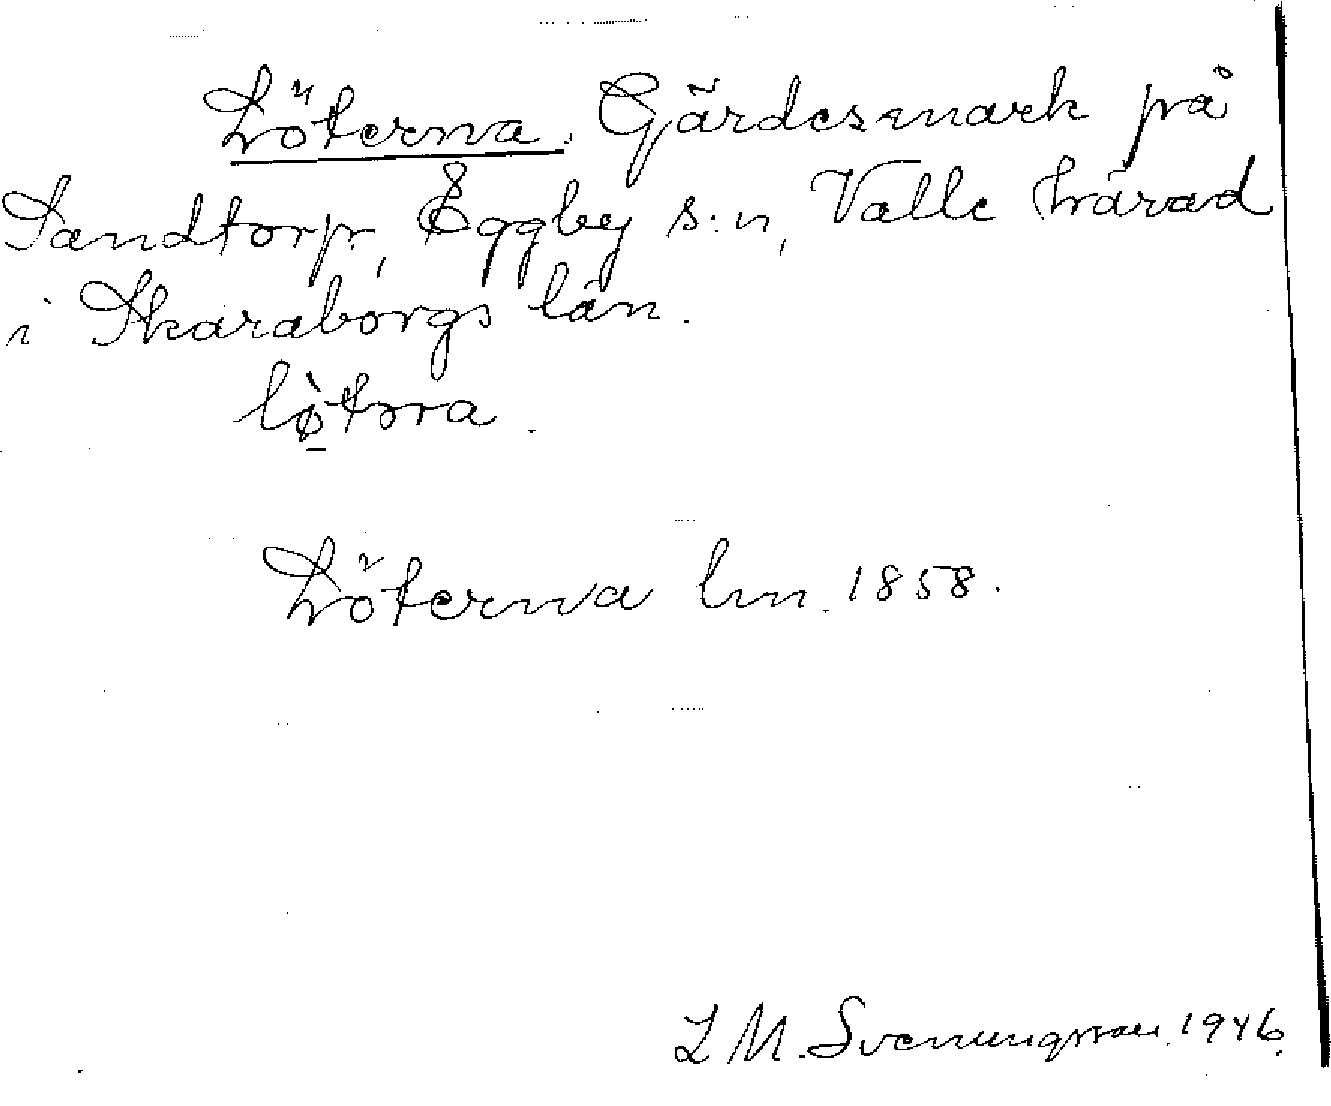 Löterna. Gärdesmark på
Sandtorp, Eggby s:n, Valle härad
i Skaraborgs län.
lø̀tɔra.
Löterna lm. 1858.
L M. Svenungsson. 1946.